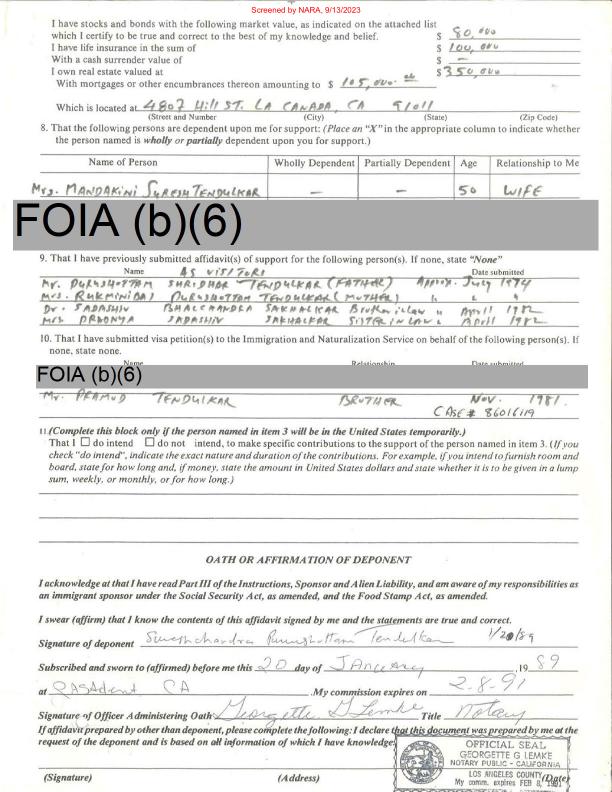 Screened by NARA, 9/13/2023
I have stocks and bonds with the following market value, as indicated on the attached list
which I certify to be true and correct to the best of my knowledge and belief. $ 80,000
I have life insurance in the sum of $ 100,000
With a cash surrender value of $ —
I own real estate valued at $ 350,000
With mortgages or other encumbrances thereon amounting to $ 105,000.00
Which is located at 4807 Hill ST. LA CANADA, CA 91011
(Street and Number) (City) (State) (Zip Code)
8. That the following persons are dependent upon me for support: (Place an "X" in the appropriate column to indicate whether
the person named is wholly or partially dependent upon you for support.)
Name of Person Wholly Dependent Partially Dependent Age Relationship to Me
Mrs. MANDAKINI SURESH TENDULKAR — — 50 WIFE
FOIA (b)(6)
9. That I have previously submitted affidavit(s) of support for the following person(s). If none, state "None"
Name AS VISITORS Date submitted
Mr. PURUSHOTTAM SHRIDHAR TENDULKAR (FATHER) Approx. July 1974
Mrs. RUKMINIBAI PURUSHOTTAM TENDULKAR (MOTHER) " " "
Dr. SADASHIV BHALCHANDRA SAKHALKAR Brother in law April 1982
Mrs. SADASHIV SAKHALKAR SISTER IN LAW April 1982
10. That I have submitted visa petition(s) to the Immigration and Naturalization Service on behalf of the following person(s). If
none, state none.
Name Relationship Date submitted
FOIA (b)(6)
Mr. PRAMOD TENDULKAR BROTHER NOV. 1981.
CASE # 86016119
11. (Complete this block only if the person named in item 3 will be in the United States temporarily.)
That I ☐ do intend ☐ do not intend, to make specific contributions to the support of the person named in item 3. (If you
check "do intend", indicate the exact nature and duration of the contributions. For example, if you intend to furnish room and
board, state for how long and, if money, state the amount in United States dollars and state whether it is to be given in a lump
sum, weekly, or monthly, or for how long.)
OATH OR AFFIRMATION OF DEPONENT
I acknowledge at that I have read Part III of the Instructions, Sponsor and Alien Liability, and am aware of my responsibilities as
an immigrant sponsor under the Social Security Act, as amended, and the Food Stamp Act, as amended.
I swear (affirm) that I know the contents of this affidavit signed by me and the statements are true and correct.
Signature of deponent Sureshchandra Purushottam Tendulkar 1/20/89
Subscribed and sworn to (affirmed) before me this 20 day of JANuary ,19 89
at PASAdena CA .My commission expires on 2-8-91
Signature of Officer Administering Oath Georgette G Lemke Title Notary
If affidavit prepared by other than deponent, please complete the following: I declare that this document was prepared by me at the
request of the deponent and is based on all information of which I have knowledge.
OFFICIAL SEAL
GEORGETTE G LEMKE
NOTARY PUBLIC - CALIFORNIA
LOS ANGELES COUNTY
My comm. expires FEB 8, 1991
(Signature) (Address) (Date)